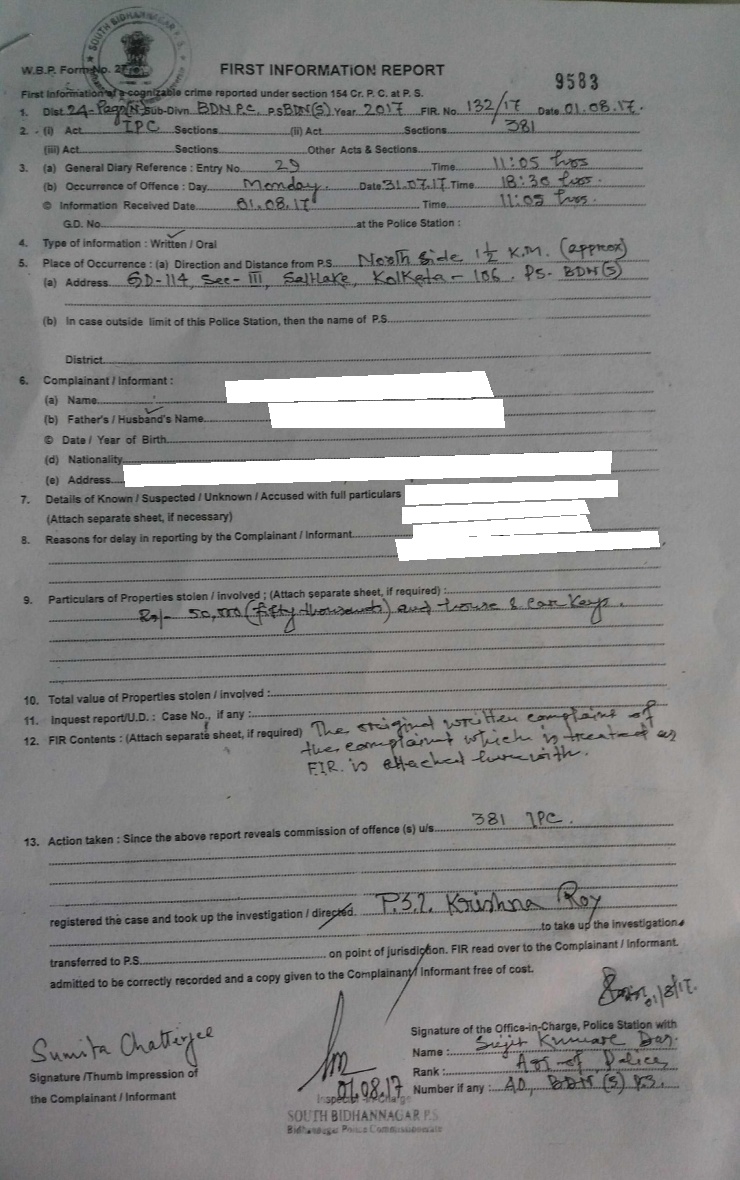 SOUTH BIDHANNAGAR P.S.
W.B.P. Form No. 27
FIRST INFORMATION REPORT
9583
First Information of a cognizable crime reported under section 154 Cr. P. C. at P. S.
1. Dist. 24-Pags(N) Sub-Divn. BDN P.C. P.S BDN(S) Year 2017 FIR. No. 132/17 Date 01.08.17.
2. (i) Act IPC Sections (ii) Act Sections 381
(iii) Act Sections Other Acts & Sections
3. (a) General Diary Reference : Entry No. 29 Time 11:05 hrs
(b) Occurrence of Offence : Day Monday. Date 31.07.17 Time 18:30 hrs.
© Information Received Date 01.08.17 Time 11:05 hrs.
G.D. No. at the Police Station :
4. Type of information : Written / Oral
5. Place of Occurrence : (a) Direction and Distance from P.S. North Side 1½ K.M. (approx)
(a) Address GD-114, Sec-III, SaltLake, Kolkata-106. PS- BDN(S)
(b) In case outside limit of this Police Station, then the name of P.S.
District
6. Complainant / Informant :
(a) Name
(b) Father's / Husband's Name
© Date / Year of Birth
(d) Nationality
(e) Address
7. Details of Known / Suspected / Unknown / Accused with full particulars
(Attach separate sheet, if necessary)
8. Reasons for delay in reporting by the Complainant / Informant
9. Particulars of Properties stolen / involved ; (Attach separate sheet, if required) :
Rs/- 50,000 (fifty thousands) and house & car Keys.
10. Total value of Properties stolen / involved :
11. Inquest report/U.D. : Case No., if any :
12. FIR Contents : (Attach separate sheet, if required) The original written complaint of
the complaint which is treated as
F.I.R. is attached herewith.
13. Action taken : Since the above report reveals commission of offence (s) u/s 381 IPC.
registered the case and took up the investigation / directed. P.S.I. Krishna Roy
to take up the investigation
transferred to P.S. on point of jurisdiction. FIR read over to the Complainant / Informant.
admitted to be correctly recorded and a copy given to the Complainant / Informant free of cost.
01/8/17.
Sumita Chatterjee
Signature /Thumb Impression of
the Complainant / Informant
01.08.17
SOUTH BIDHANNAGAR P.S.
Bidhannagar Police Commissionerate
Signature of the Office-in-Charge, Police Station with
Name : Sujit Kumar Das.
Rank : ASI of Police
Number if any : AD, BDN (S) P.S.